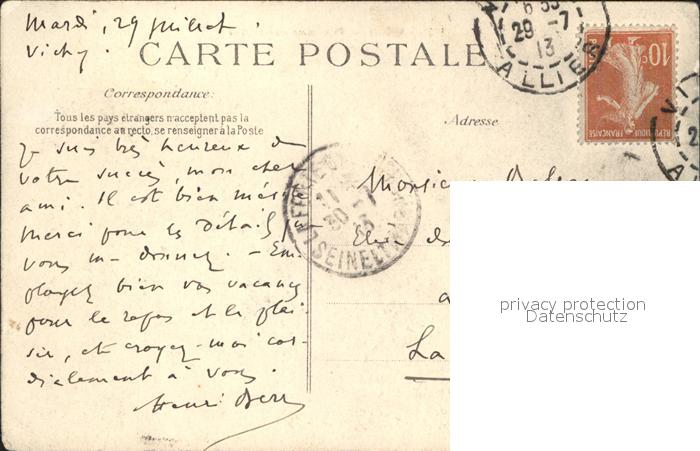 Mardi, 29 juillet.
Vichy.
CARTE POSTALE
Correspondance:
Tous les pays étrangers n'acceptent pas la
correspondance au recto, se renseigner à la Poste
Adresse
Je suis très heureux de
votre succès, mon cher
ami. Il est bien mérité
merci pour les détails
vous me donnez. — Em-
ployez bien vos vacances
pour le repos et le plai-
sir, et croyez-moi cor-
dialement à vous.
Henri
Monsieur
Elève
La
29 -7
13
ALLIER
SEINE
10c
REPUBLIQUE FRANÇAISE
privacy protection
Datenschutz